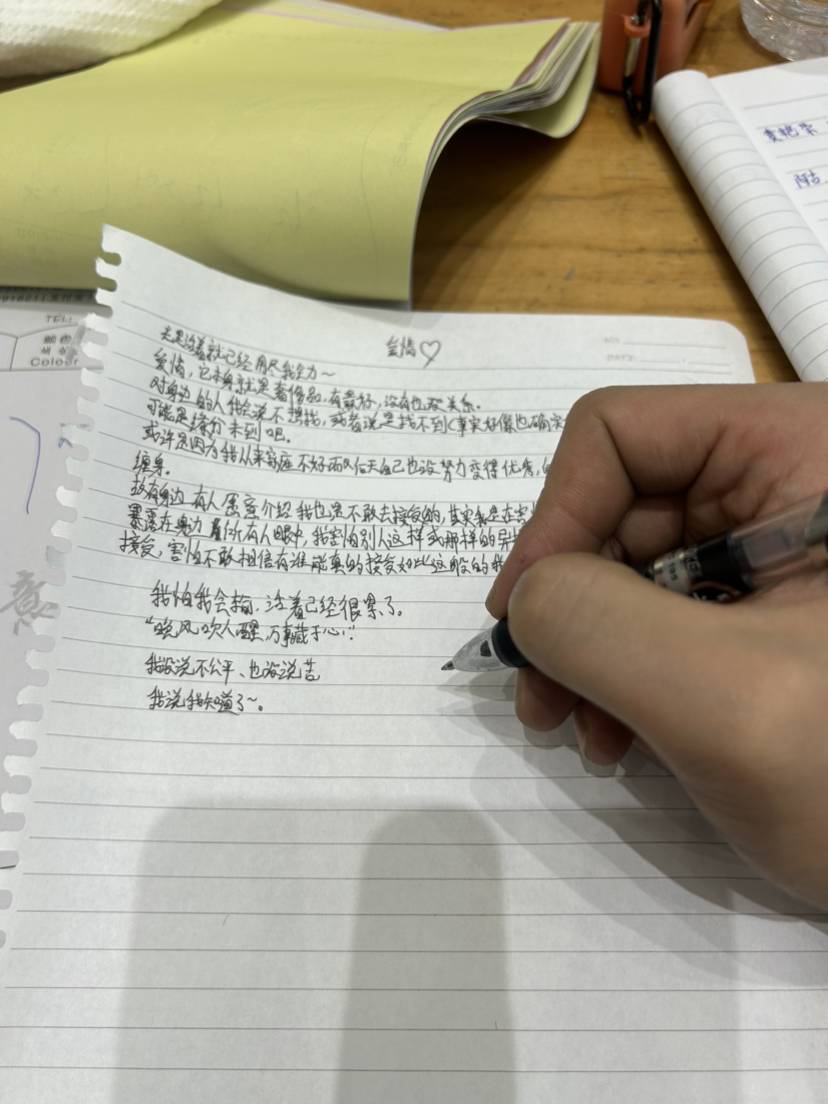 爱情♡
光是活着就已经用尽我全力~
爱情,它本身就是奢侈品,有最好,没有也没关系。
对身边的人我会说不想找,或者说是找不到(事实好像也确实
可能是缘分未到吧。
或许是因为我从来家庭不好而后天自己也没努力变得优秀,
缠身。
故有身边有人愿意介绍我也是不敢去接受的,其实我是在害
暴露在身边所有人眼中,我害怕别人这样或那样的异
接受,害怕不敢相信有谁能真的接受如此这般的我
我怕我会输,活着已经很累了。
“晚风吹人醒,万事藏于心”.
我没说不公平、也没说苦
我说我知道了~。
TEL:
颜色
Colour
意